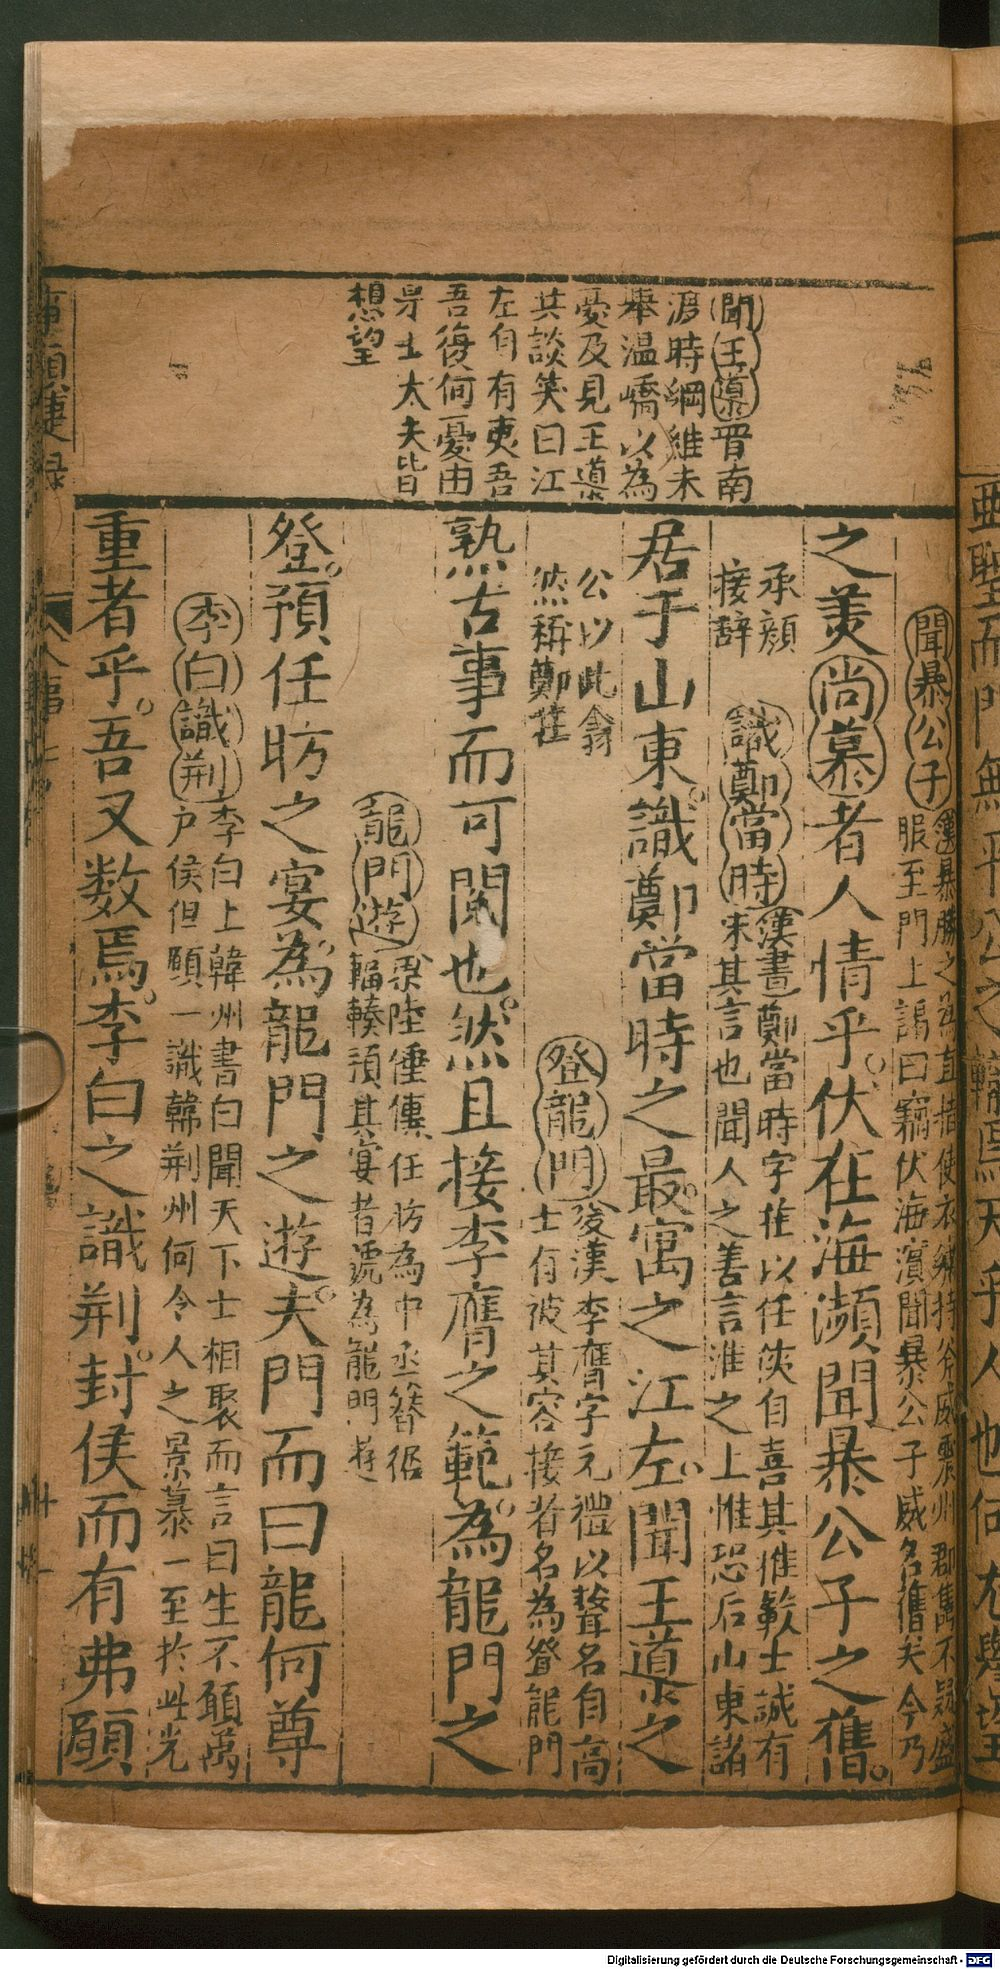 聞王導晋南
渡時綱維未
舉温嶠以為
憂及見王導
共談笑曰江
左自有夷吾
吾復何憂由
是士大夫皆
想望
聞暴公子漢暴勝之為直指使衣綉持斧威震州郡雋不疑盛
服至門上謁曰竊伏海濱聞暴公子威名舊矣今乃
承顔
接辭
之羙尚慕者人情乎伏在海瀕聞暴公子之舊
識鄭當時漢書鄭當時字莊以任俠自喜其推轂士誠有
味其言也聞人之善言進之上惟恐后山東諸
公以此翕
然稱鄭莊
居于山東識鄭當時之最寓之江左聞王導之
登龍門後漢李膺字元禮以聲名自高
士有被其容接者名為登龍門
熟古事而可閱也然且接李膺之範為龍門之
龍門遊梁陸倕傳任昉為中丞簪裾
輻輳預其宴者號為龍門遊
登預任昉之宴為龍門之遊夫門而曰龍何尊
李白識荆李白上韓州書白聞天下士相聚而言曰生不願萬
户侯但願一識韓荆州何令人之景慕一至於此光
重者乎吾又数焉李白之識荆封侯而有弗願
亜聖而門無
天乎人也何尤與
捷録
人事
十一
Digitalisierung gefördert durch die Deutsche Forschungsgemeinschaft - DFG